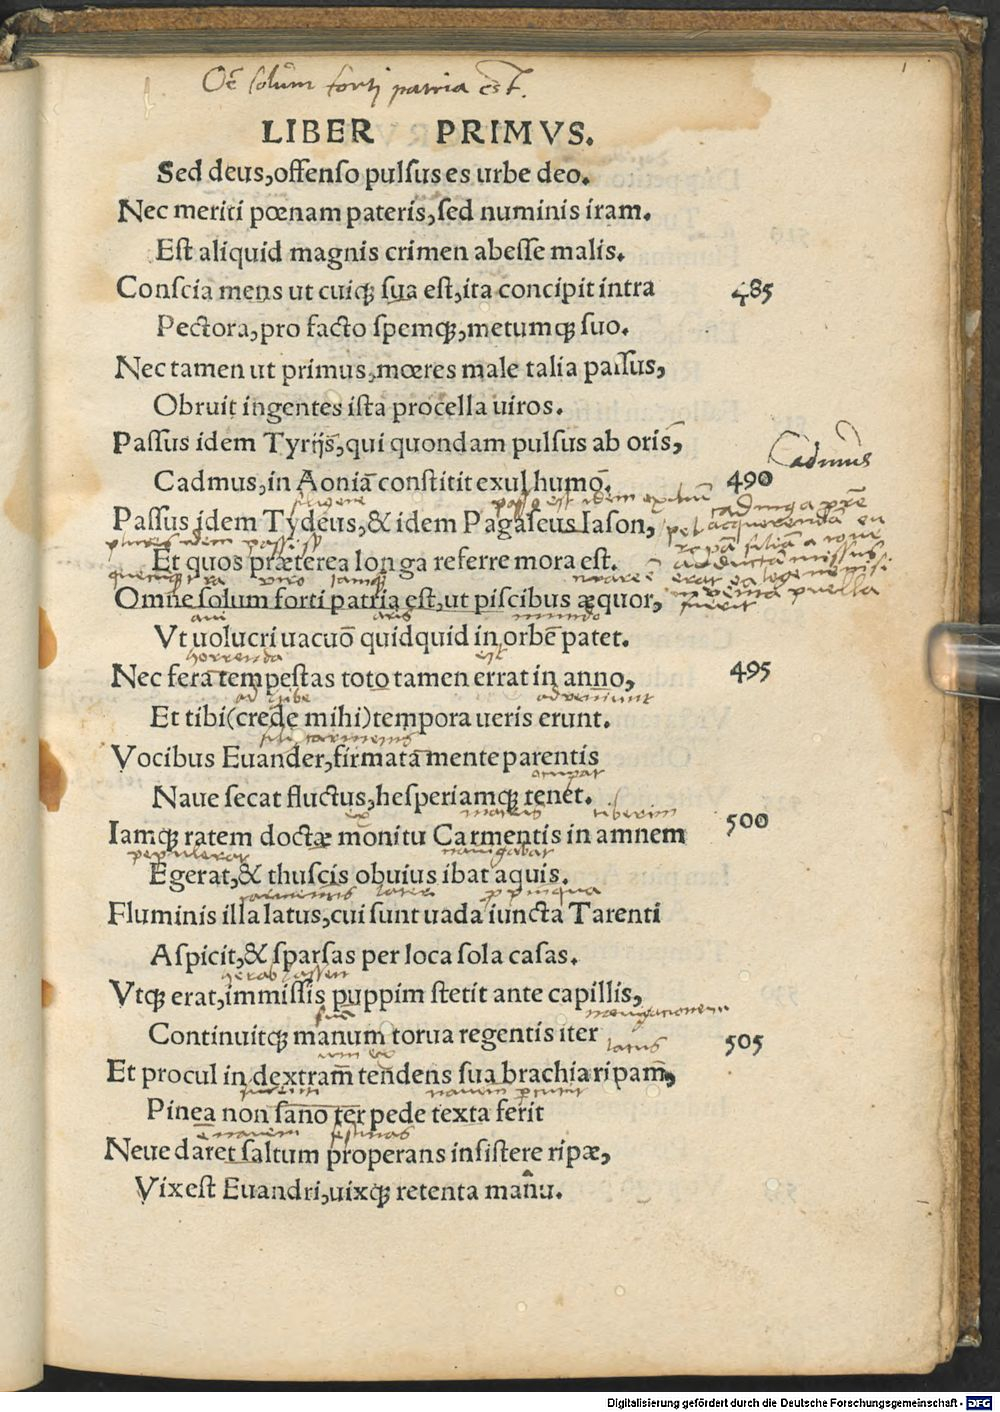 Oē solum forti patria est.
LIBER PRIMVS.
Sed deus, offenso pulsus es urbe deo.
Nec meriti pœnam pateris, sed numinis iram.
Est aliquid magnis crimen abesse malis.
Conscia mens ut cuiq; sua est, ita concipit intra 485
Pectora, pro facto spemq;, metumq; suo.
Nec tamen ut primus, mœres male talia passus,
Obruit ingentes ista procella uiros.
Passus idem Tyrijs, qui quondam pulsus ab oris,
Cadmus
Cadmus, in Aoniā constitit exul humō. 490
passꝰ est idem exilium
Passus idem Tydeus, & idem Pagaseus Iason,
plures idem passi
Et quos præterea longa referre mora est.
viro
Omne solum forti patria est, ut piscibus æquor,
aui aeris mundo
Vt uolucri uacuo quidquid in orbe patet.
horrenda est
Nec fera tempestas toto tamen errat in anno, 495
adveniunt
Et tibi (crede mihi) tempora ueris erunt.
carmenis
Vocibus Euander, firmata mente parentis
occupat
Naue secat fluctus, hesperiamq; tenet.
ex matris tiberim
Iamq; ratem doctæ monitu Carmentis in amnem 500
pepulerat navigabat
Egerat, & thuscis obuius ibat aquis.
carmentis later propinqua
Fluminis illa latus, cui sunt uada iuncta Tarenti
Aspicit, & sparsas per loca sola casas.
Vtq; erat, immissis puppim stetit ante capillis,
suā navigationem
Continuitq; manum torua regentis iter 505
latus
Et procul in dextram tendens sua brachia ripam,
navem percutit
Pinea non sano ter pede texta ferit
ē navem festinas
Neue daret saltum properans insistere ripæ,
Vix est Euandri, uixq; retenta manu.
Digitalisierung gefördert durch die Deutsche Forschungsgemeinschaft - DFG